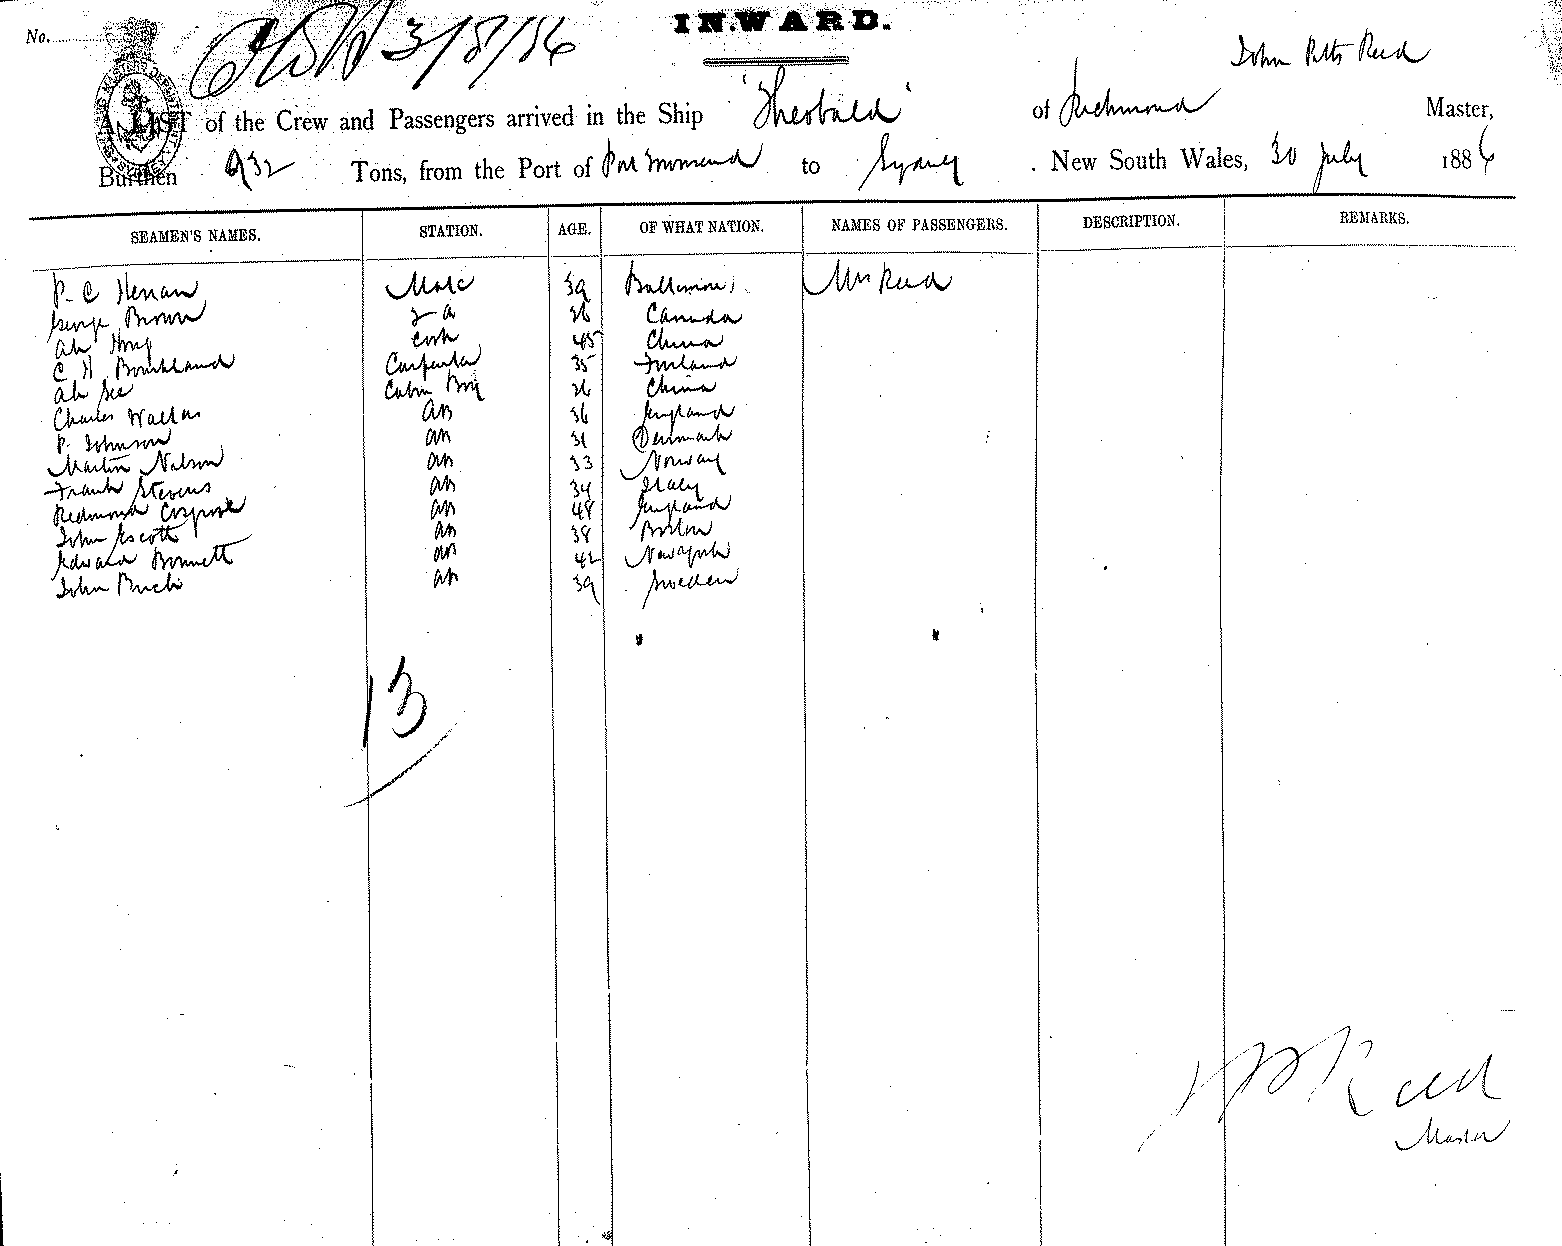 No.
3/8/86
INWARD.
John Potts Reed
A LIST of the Crew and Passengers arrived in the Ship 'Theobald' of Richmond Master,
Burthen 932 Tons, from the Port of Port Townsend to Sydney New South Wales, 30 July 1886
SEAMEN'S NAMES. STATION. AGE. OF WHAT NATION. NAMES OF PASSENGERS. DESCRIPTION. REMARKS.
P. C. Mate 39 Baltimore Mrs Reed
George Brown 2 d 26 Canada
Ah Hong Cook 45 China
C H Carpenter 35 Finland
Ah See Cabin Boy 26 China
Charles Wallace AB 36 England
P. Johnson AB 31 Denmark
Martin Nelson AB 33 Norway
Frank Stevens AB 34 Italy
Redmond AB 48 England
John Escott AB 38 Boston
Edward Bonnett AB 42 New York
John AB 39 Sweden
13
J P Reed
Master